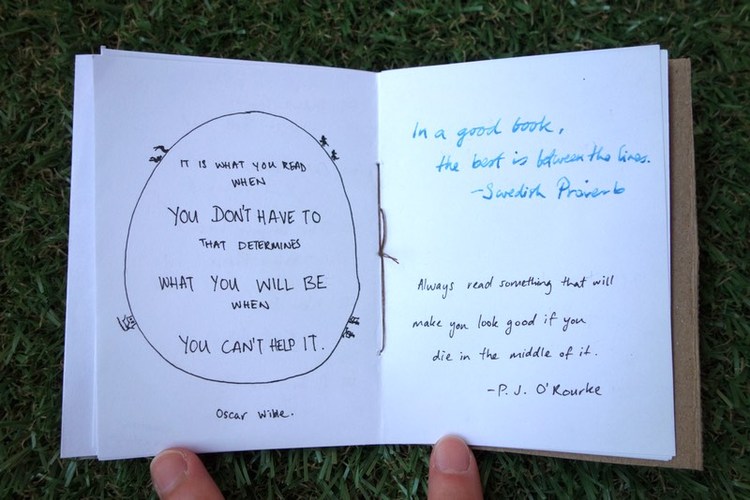 IT IS WHAT YOU READ
WHEN
YOU DON'T HAVE TO
THAT DETERMINES
WHAT YOU WILL BE
WHEN
YOU CAN'T HELP IT.
Oscar Wilde.
In a good book,
the best is between the lines.
-Swedish Proverb
Always read something that will
make you look good if you
die in the middle of it.
-P. J. O'Rourke